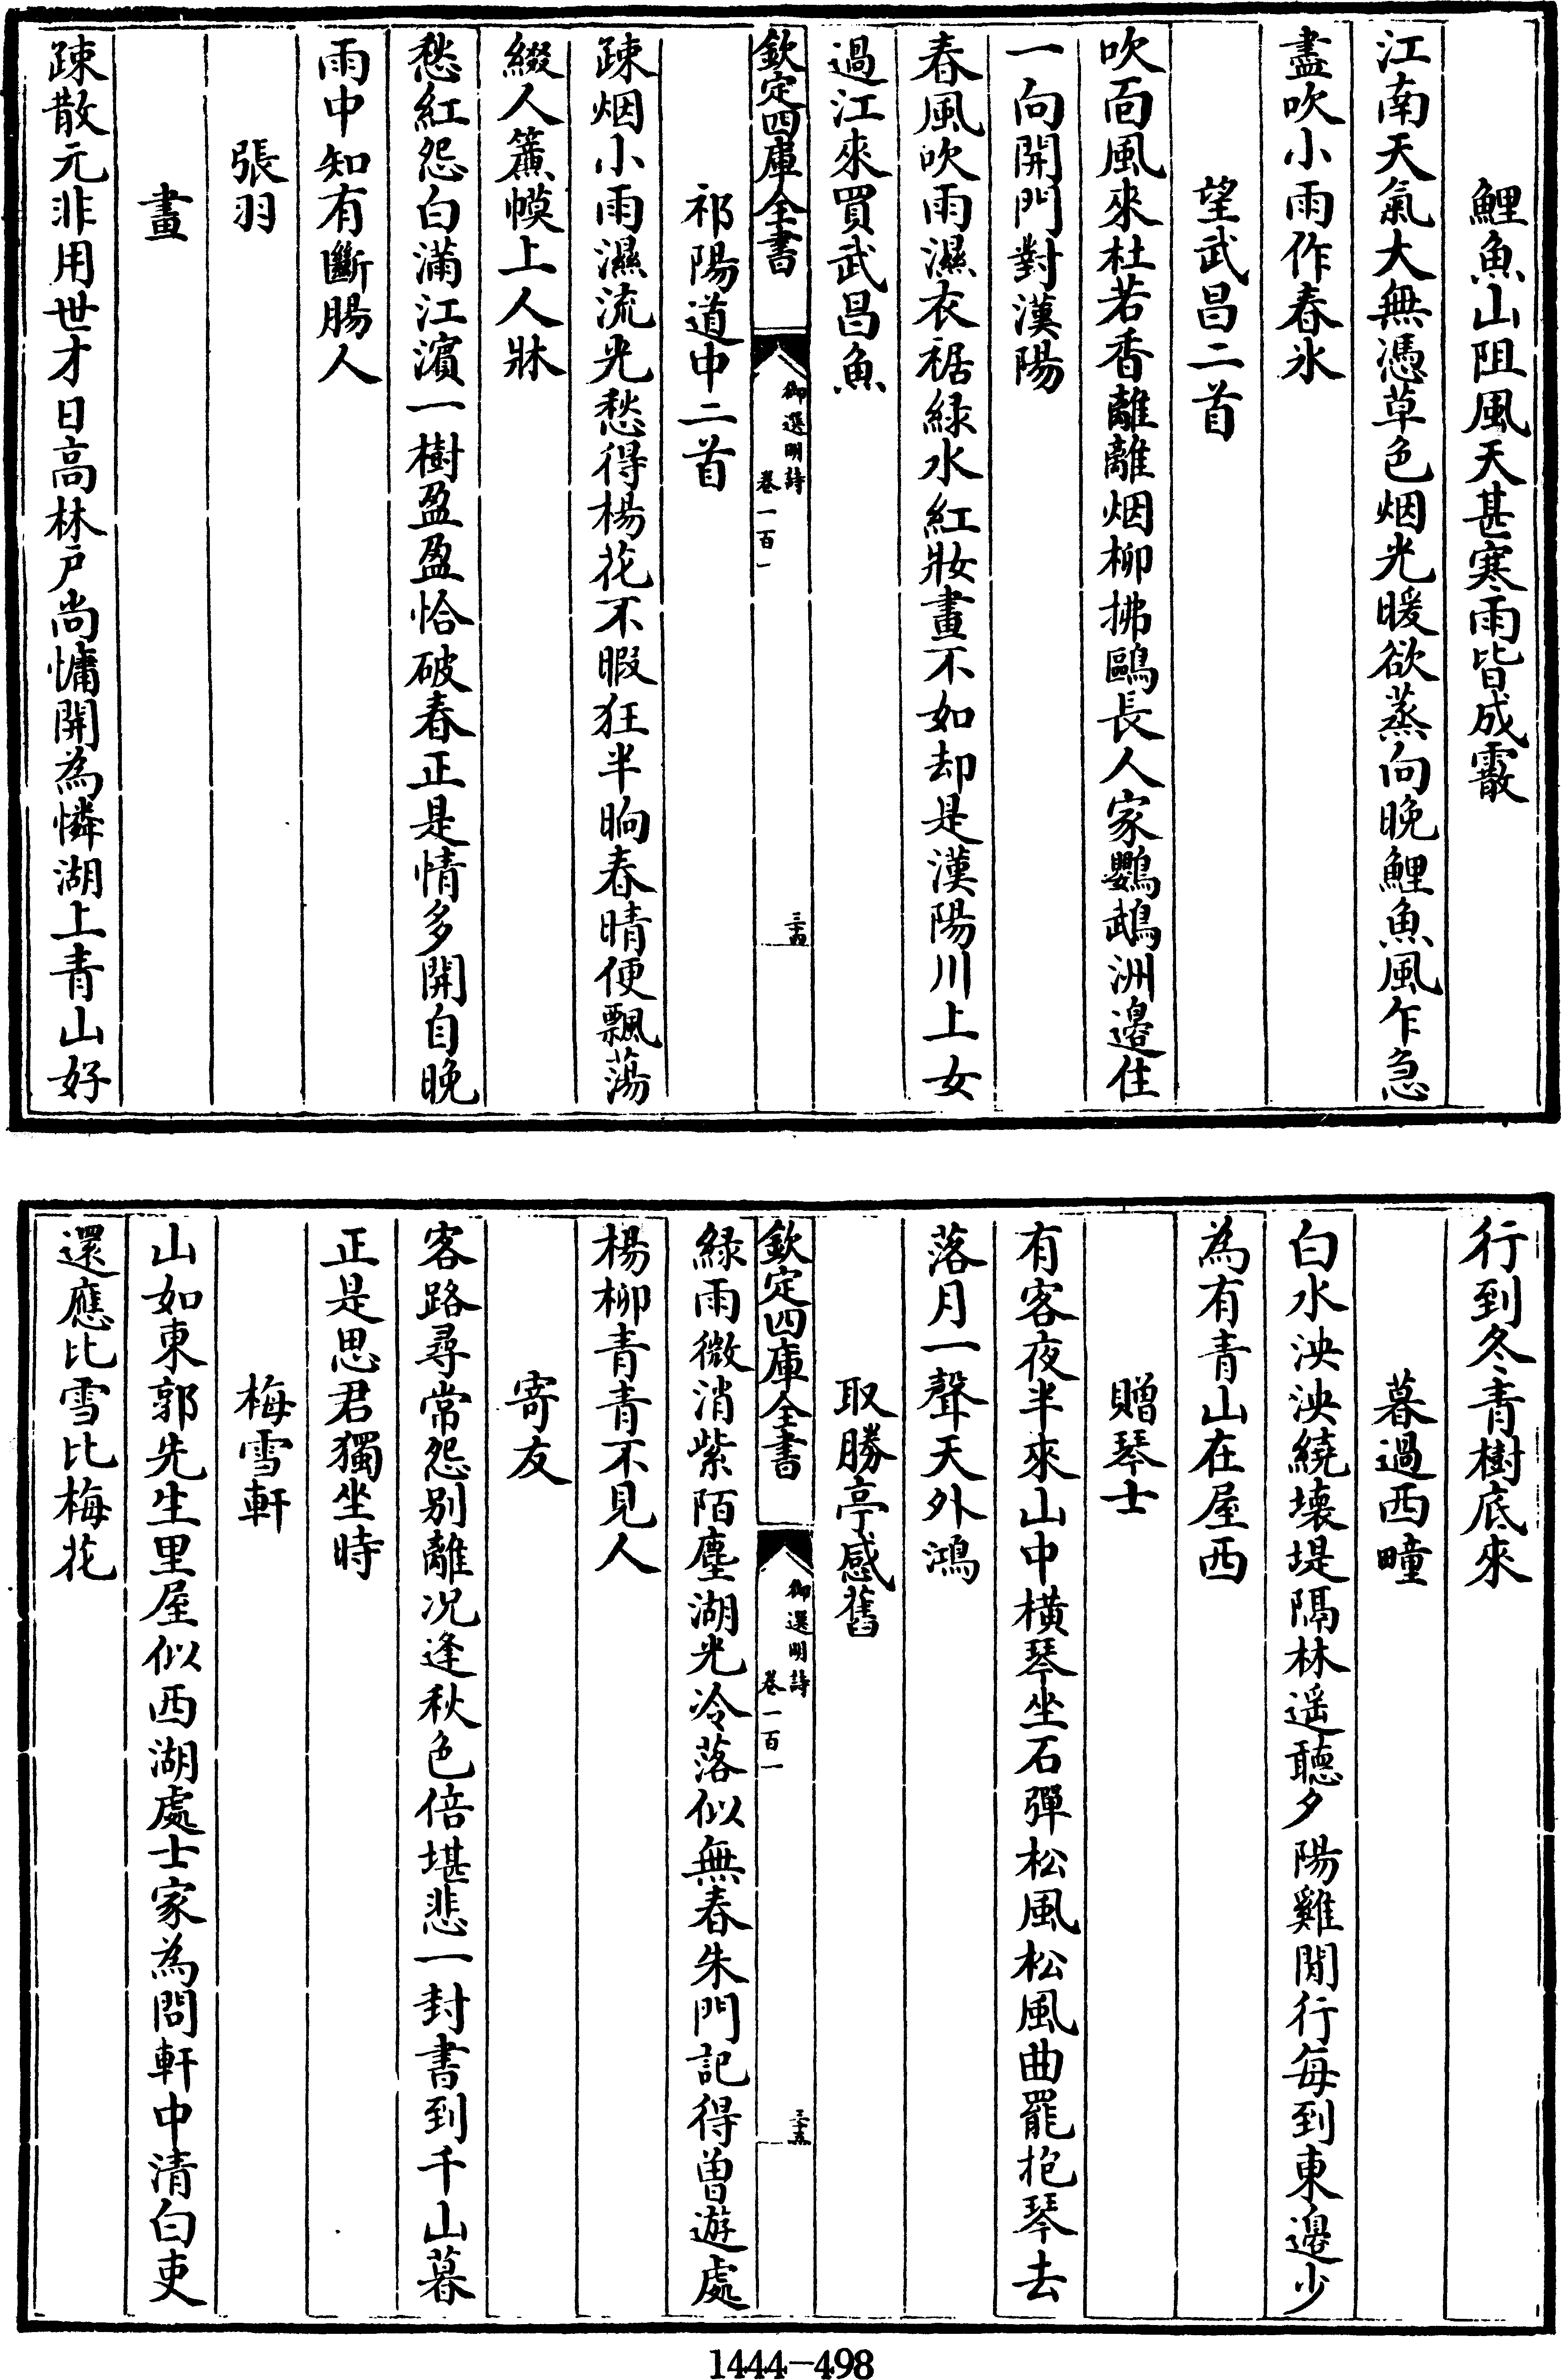 鯉魚山阻風天甚寒雨皆成霰
江南天氣大無憑草色烟光暖欲蒸向晚鯉魚風乍急
盡吹小雨作春氷
望武昌二首
吹面風來杜若香離離烟柳拂鷗長人家鸚鵡洲邊住
一向開門對漢陽
春風吹雨濕衣裾緑水紅妝畫不如却是漢陽川上女
過江來買武昌魚
欽定四庫全書
御選明詩
卷一百一
三十四
祁陽道中二首
踈烟小雨濕流光愁得楊花不暇狂半晌春晴便飄蕩
綴人簾幙上人牀
愁紅怨白滿江濱一樹盈盈恰破春正是情多開自晚
雨中知有斷腸人
張羽
畫
踈散元非用世才日高林戶尚慵開為憐湖上青山好
行到冬青樹底來
暮過西疃
白水泱泱繞壊堤隔林遥聽夕陽雞閒行每到東邊少
為有青山在屋西
贈琴士
有客夜半來山中横琴坐石彈松風松風曲罷抱琴去
落月一聲天外鴻
取勝亭感舊
欽定四庫全書
御選明詩
卷一百一
三十五
緑雨微消紫陌塵湖光冷落似無春朱門記得曽遊處
楊柳青青不見人
寄友
客路尋常怨别離况逢秋色倍堪悲一封書到千山暮
正是思君獨坐時
梅雪軒
山如東郭先生里屋似西湖處士家為問軒中清白吏
還應比雪比梅花
1444-498